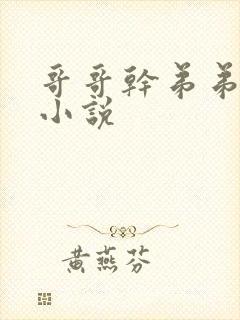 哥哥幹弟弟
小說
黃燕芬